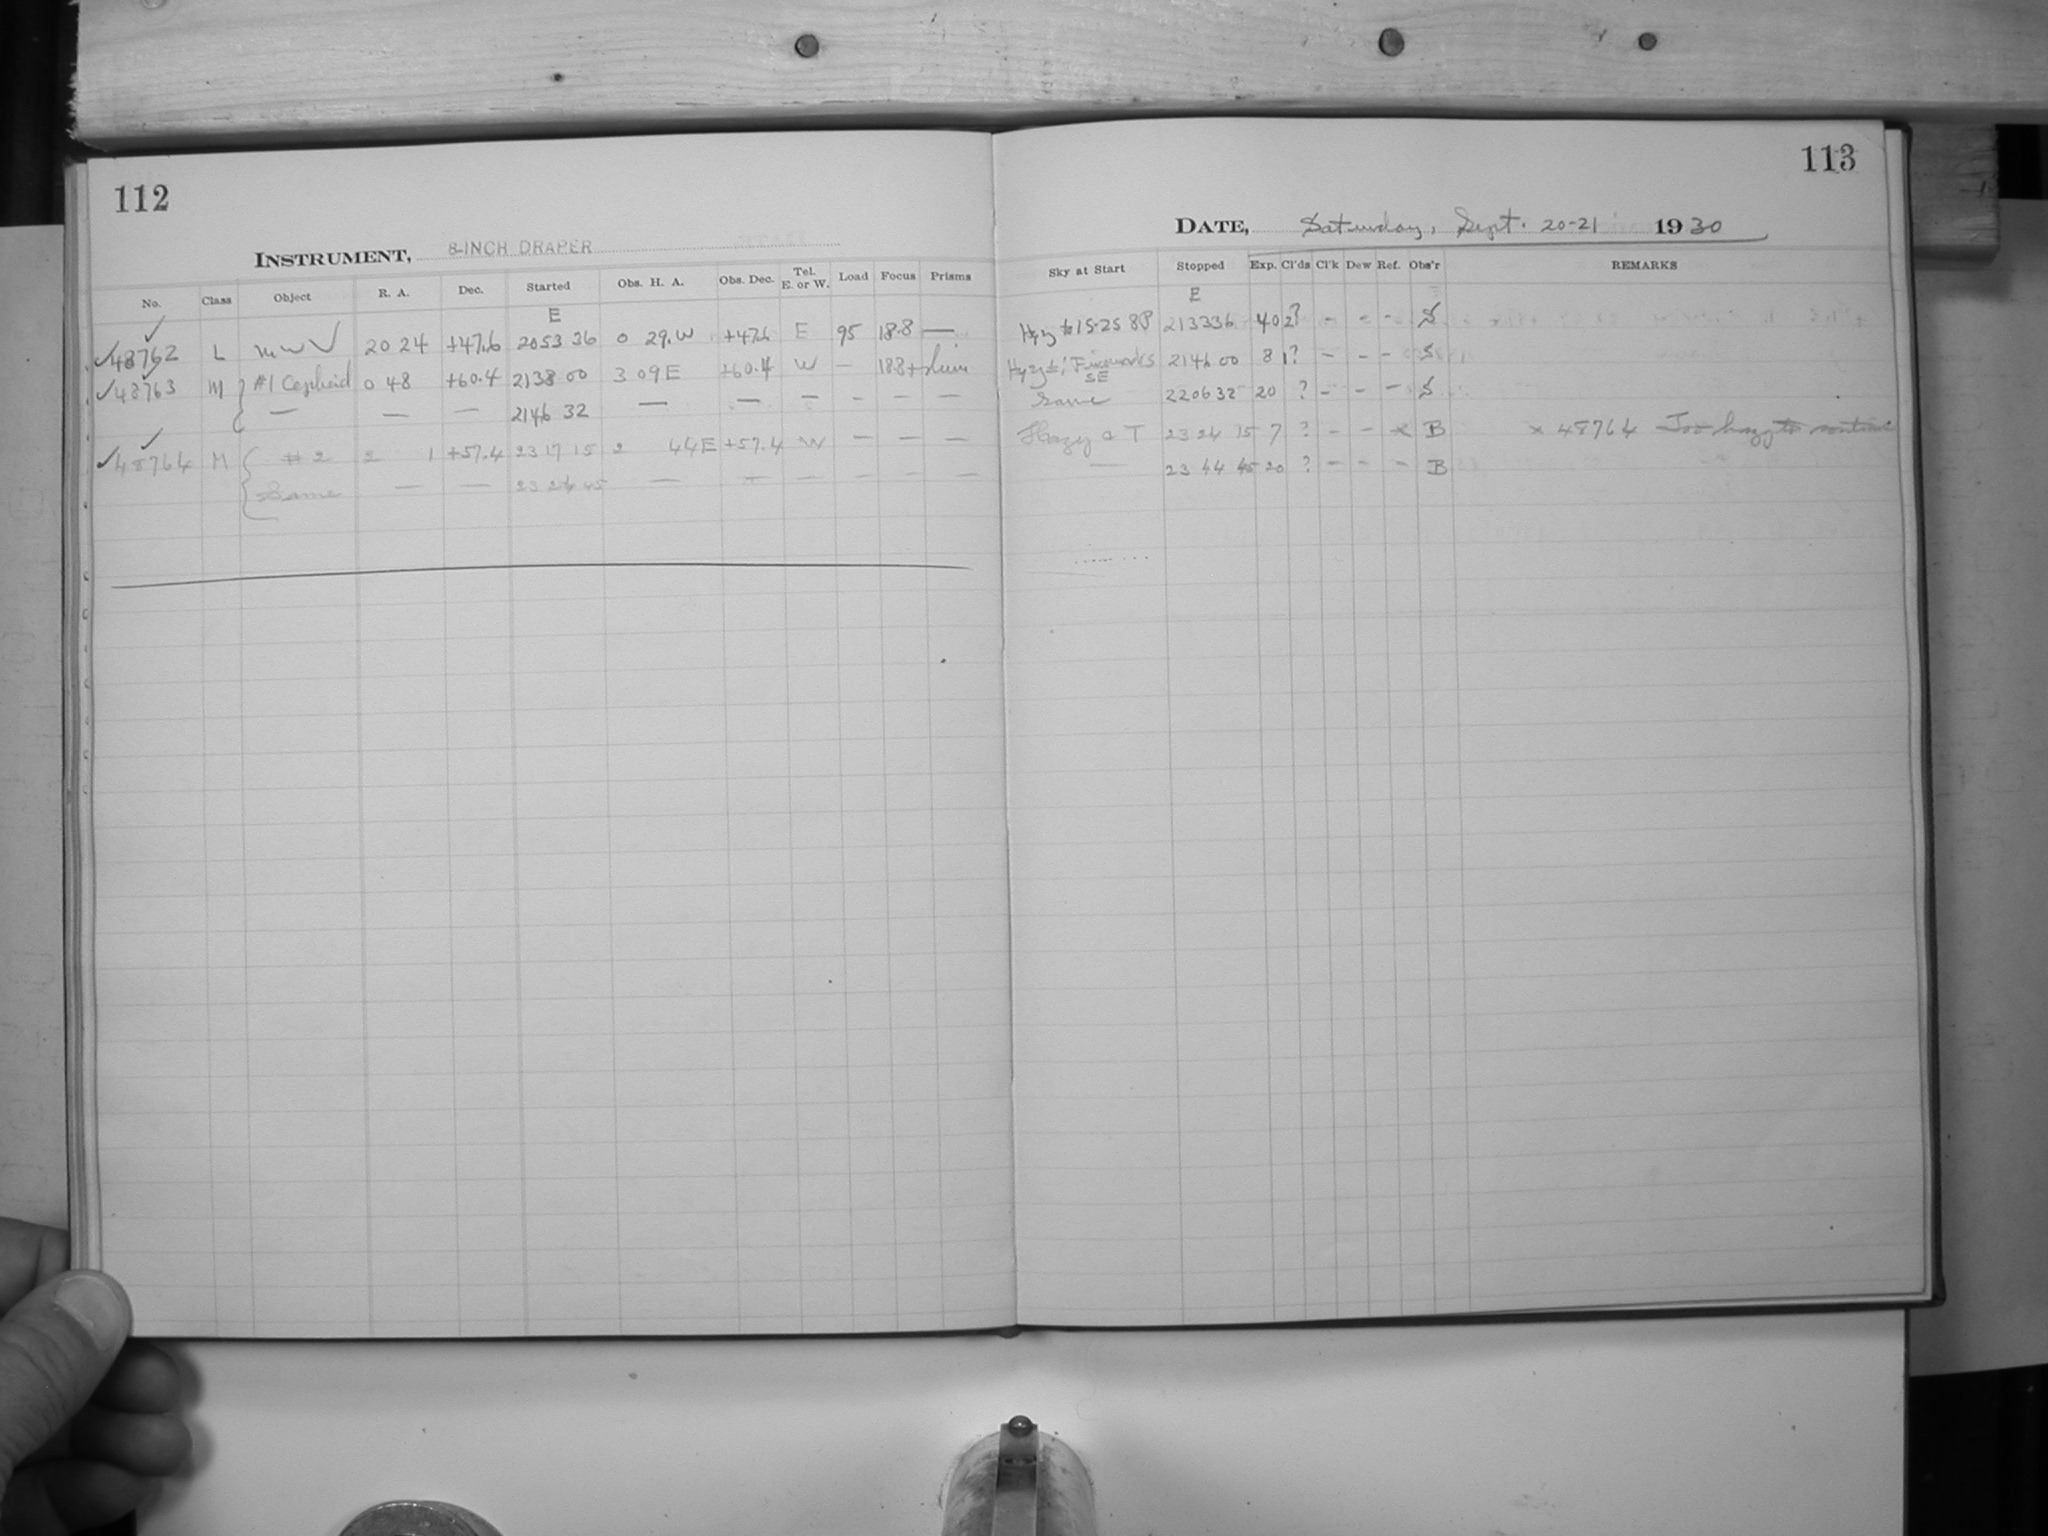 112
INSTRUMENT, 8-INCH DRAPER
No. Class Object R. A. Dec. Started Obs. H. A. Obs. Dec. Tel. E. or W. Load Focus Prisms
E
48762 L MWV 20 24 +47.6 20 53 36 0 29.W +47.6 E 95 18.8 —
48763 M #1 Cepheid 0 48 +60.4 21 38 00 3 09 E +60.4 W — 18.8+
— — — 21 46 32 — — — — — —
48764 M #2 2 1 +57.4 23 17 15 2 44E +57.4 W — — —
Same — — 23 24 45 — — — — — —
113
DATE, Saturday, Sept. 20-21 1930
Sky at Start Stopped Exp. Cl'ds Cl'k Dew Ref. Obs'r REMARKS
E
15-25 8P 21 33 36 40 2? - - - S
Fireworks SE 21 46 00 8 1? - - - S
Same 22 06 32 20 ? - - - S
Hazy a T 23 24 15 7 ? - - x B x 48764 Too hazy to continue
— 23 44 45 20 ? - - - B